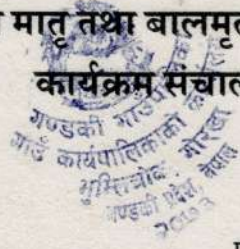 मातृ तथा बालमृत
कार्यक्रम संचाल
गण्डकी गाउँपालिका
गाउँ कार्यपालिकाको
भुम्लिचोक, गोरखा
गण्डकी प्रदेश, नेपाल